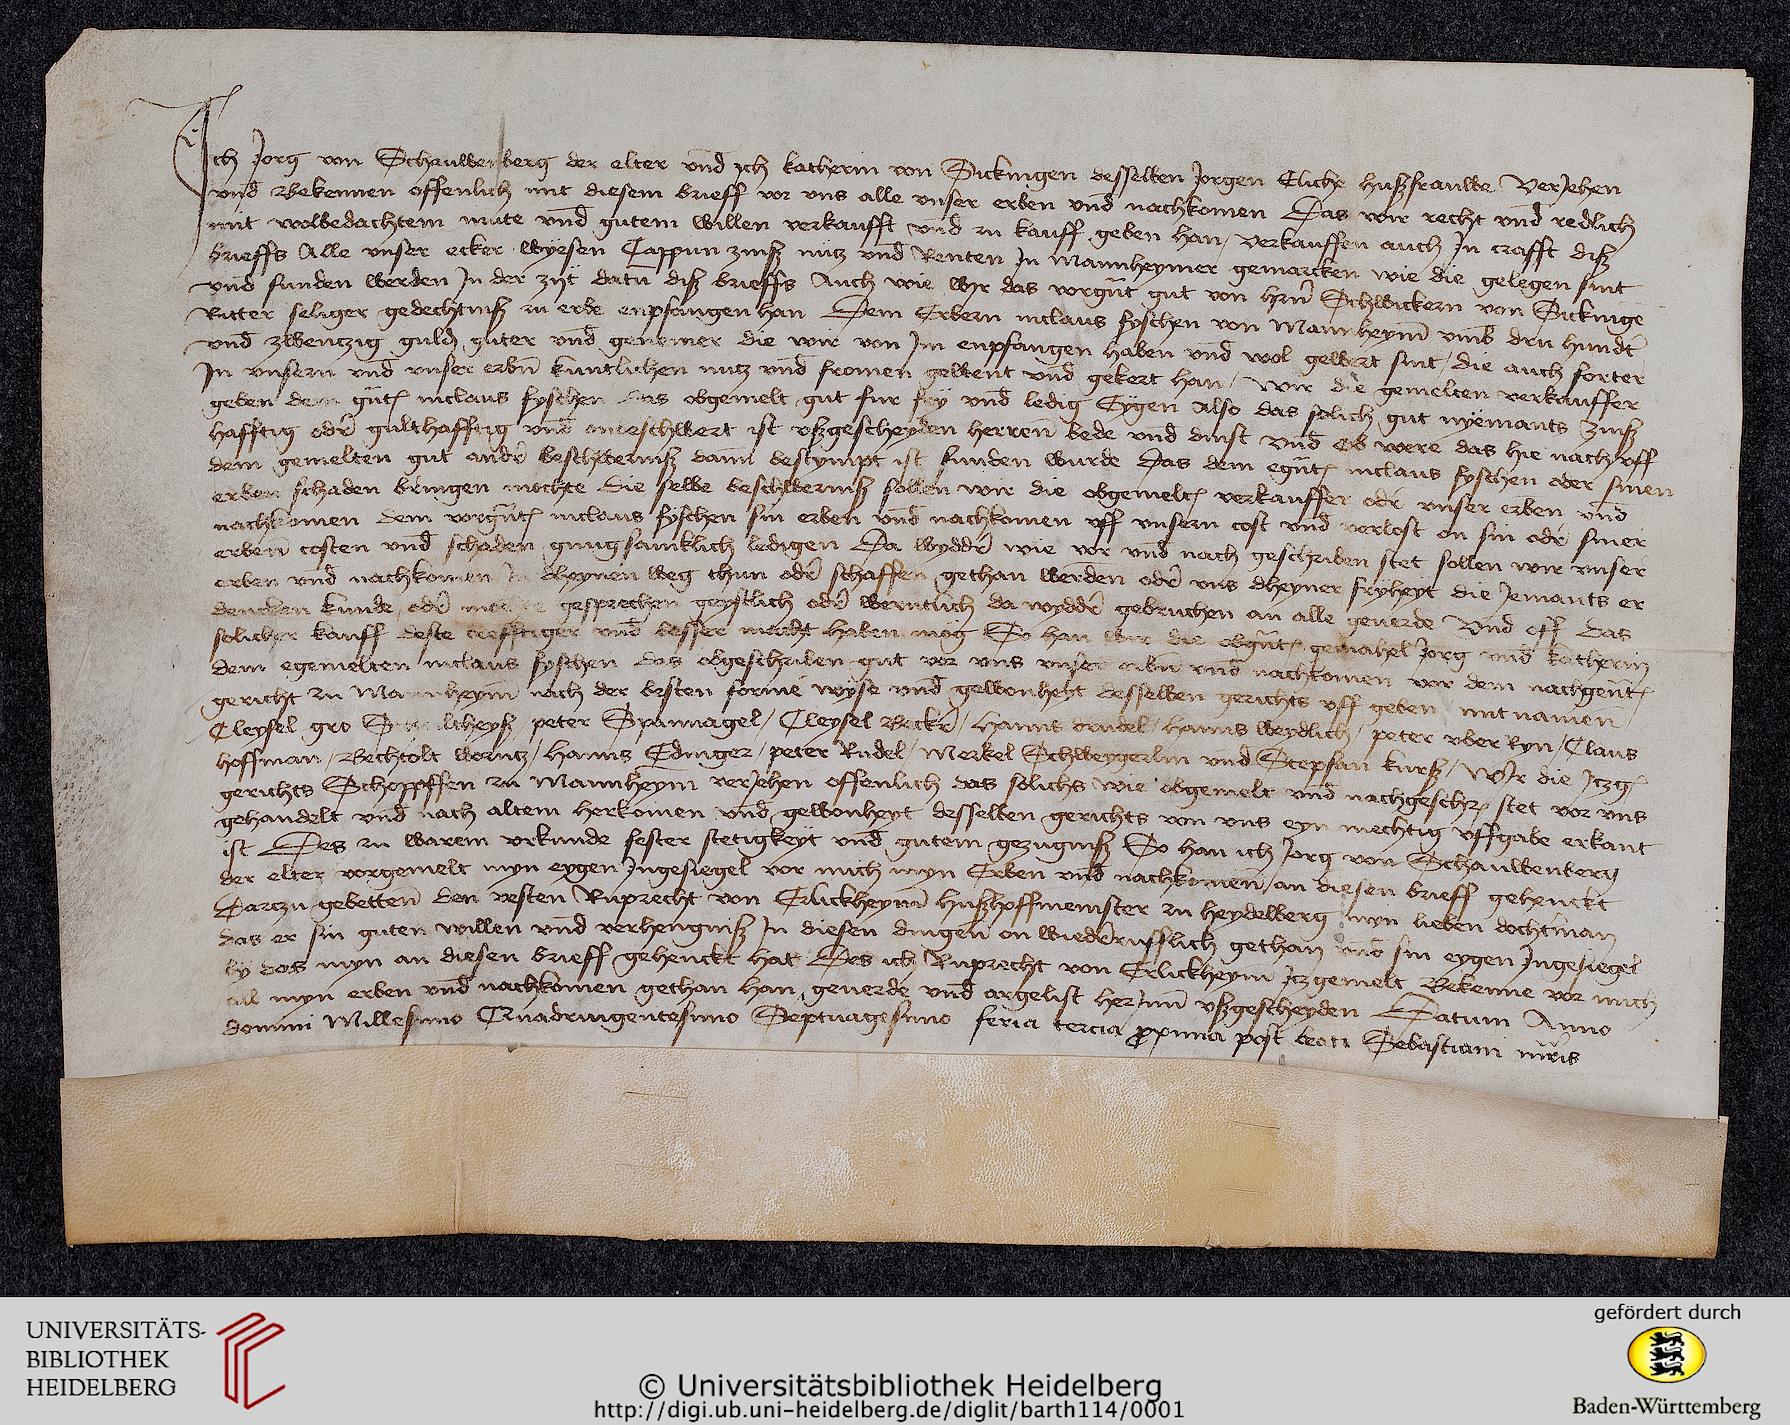 Ich Jorg von Schauwenberg der elter vnd ych katherin von Sickingen desselben Jorgen Eliche hußfrauwe Verjehen
vnd Bekennen offenlich mit diesem brieff vor vns alle vnser erben vnd nachkomen Das wir recht vnd redlich
mit wolbedachtem mute vnd gutem willen verkaufft vnd zu kauff geben han / verkauffen auch Jn crafft diß
brieffs Alle vnser ecker wyesen Cappun zinß nutz vnd Renten Jn Mannheymer gemarcken wie die gelegen sint
vnd funden werden Jn der zyt datu diß brieffs Auch wie wyr das vorgnt gut von hern Schwickern von Sickinge
Ritter seliger gedechtniß zu erbe enpfangen han Dem Erbern niclaus fyschen von Mannheym vmb dru hundt
vnd zwentzig guld guter vnd genemer die wir von Jm enpfangen haben vnd wol gewert sint / die auch forter
Jn vnsern vnd vnser erbn kuntlichen nutz vnd fromen gewent vnd gekert han / Wir die gemelten verkauffer
geben dem gnt niclaus fyschen das obgemelt gut fur fry vnd ledig Eygen Also das solich gut nyemants zinß
hafftig odr gulthafftig vnd onbeschwert ist vßgescheyden herren bede vnd dinst vnd Ob were das hie nach vff
dem gemelten gut andr beschwerniß dann bestympt ist funden wurde Das dem egnt niclaus fyschen oder sinen
erben schaden bringen mochte die selbe beschwerniß sollen wir die obgemelt verkauffer odr vnser erben vnd
nachkomen dem vorgnt niclaus fyschen sin erben vnd nachkomen vff vnsern cost vnd verlost on sin odr siner
erben costen vnd schaden gnugsamklich ledigen Da wyddr wie vor vnd nach geschriben stet sollen wir vnser
erben vnd nachkomen Jn dheynen weg thun odr schaffen gethan werden odr vns dheyner fryheyt die Jemants er
dencken kunde odr mochte gesprechen geystlich odr werntlich da wyddr gebruchen an alle geuerde Vnd off das
solicher kauff deste crefftiger vnd besser macht haben mög So han wir die obgnt gemahel Jorg vnd katherin
dem egemelten niclaus fyschen das obgeschriben gut vor vns vnser erbn vnd nachkomen vor dem nachgent
gericht zu Mannheym nach der besten forme wyse vnd gewonheyt desselben gerichts vff geben mit namen
Cleysel gro Schultheyß / peter Spannagel / Cleysel Beckr / Hanns / Hanns weydlich / peter vber Ryn / Claus
hoffman / Bechtolt wormtz / Hanns Edinger / peter Rudel / Merkel Schweygerlin vnd Steffan kurß / Wir die Jtzg
gerichts Schopffen zu Mannheym verjehen offenlich das solichs wie obgemelt vnd nachgeschr stet vor vns
gehandelt vnd nach altem herkomen vnd gewonheyt desselben gerichts von vns eyn mechtig vffgabe erkant
ist Des zu warem vrkunde fester stetigkeyt vnd gutem gezugniß So han ich Jorg von Schauwenberg
der elter vorgemelt myn eygen Jngesiegel vor mich myn Erben vnd nachkomen an diesen brieff gehenckt
Darzu gebetten den vesten Ruprecht von Erlickheym Hußhoffmeinster zu heydelberg myn lieben dochtman
das er sin guten willen vnd verhengniß Jn diesen dingen on wiederrufflich gethan vnd sin eygen Jngesiegel
by das myn an diesen brieff gehenckt hat Des ich Ruprecht von Erlickheym Jtzgemelt Bekenne vor mich
all myn erben vnd nachkomen gethan han geuerde vnd argelist herJnn vßgescheyden Datum Anno
domini Millesimo Quadringentesimo Septuagesimo feria tercia proxima post beati Sebastiani mris
UNIVERSITÄTS-
BIBLIOTHEK
HEIDELBERG
© Universitätsbibliothek Heidelberg
http://digi.ub.uni-heidelberg.de/diglit/barth114/0001
gefördert durch
Baden-Württemberg